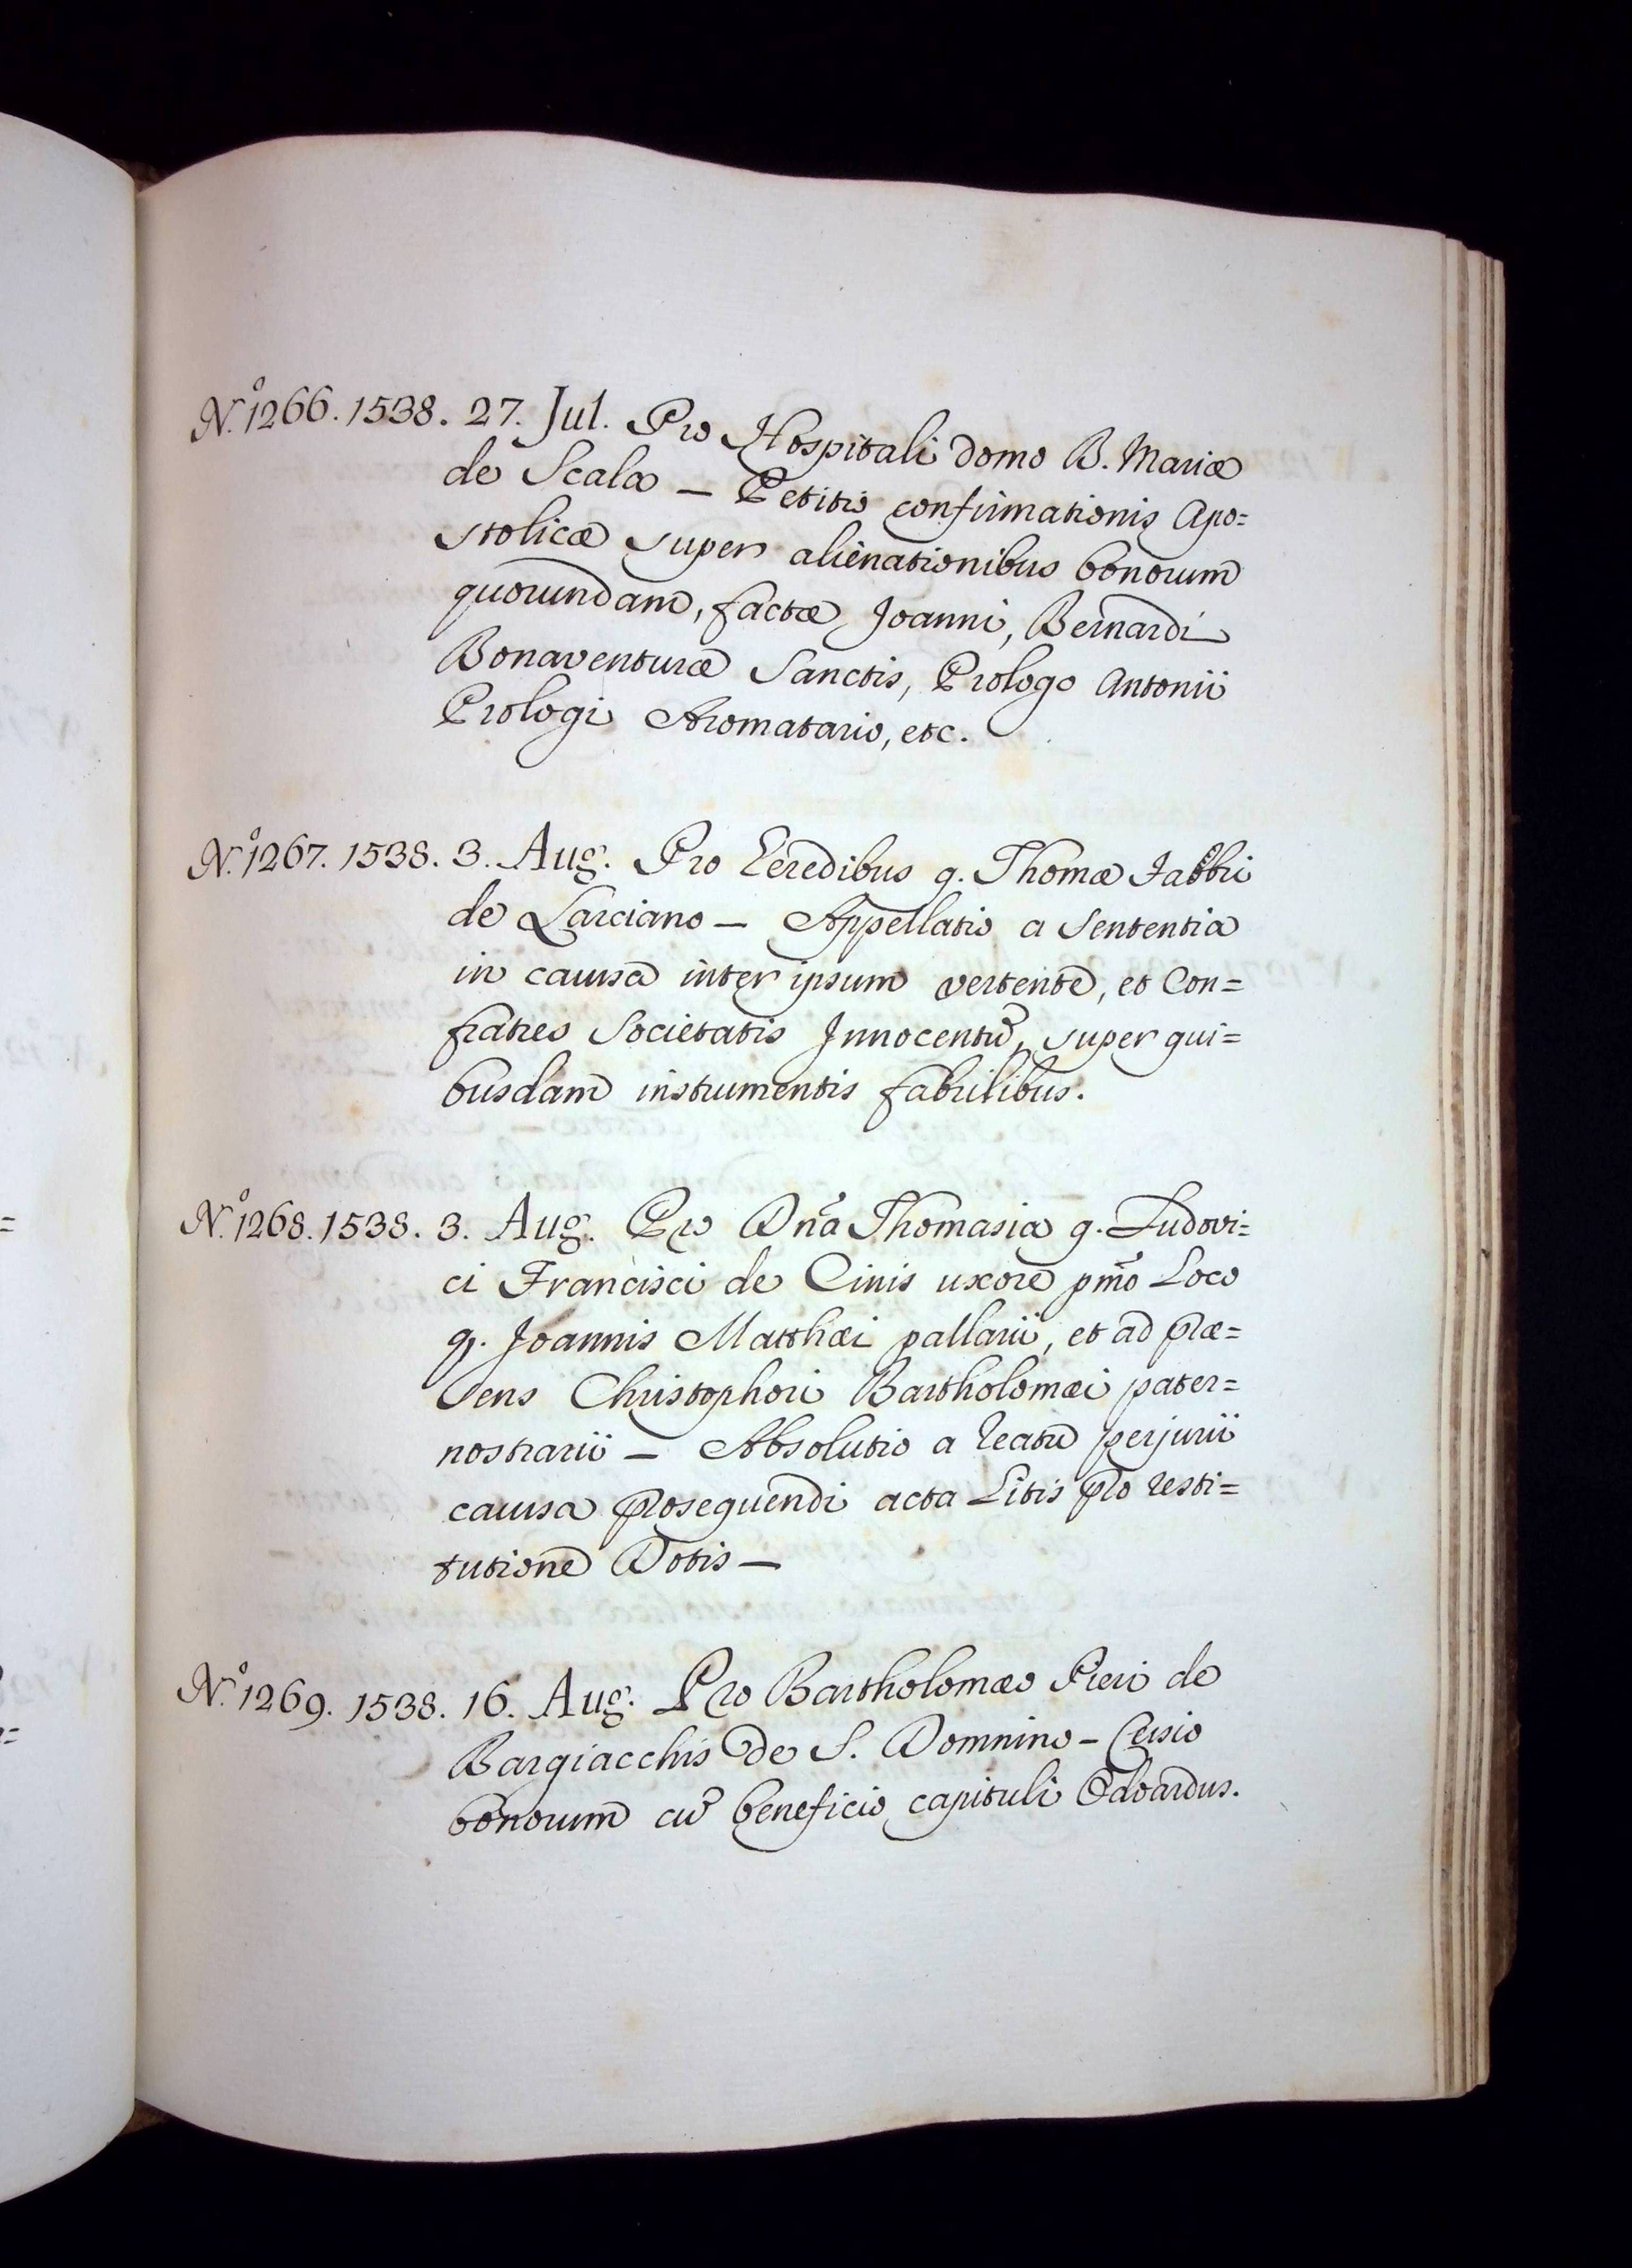 N.º 1266. 1538. 27. Jul. Pro Hospitali domo B. Mariæ
de Scala — Petitio confirmationis Apo=
stolicæ super alienationibus bonorum
quorundam, factæ Joanni, Bernardi
Bonaventuræ Sanctis, Prologo Antonii
Prologi Aromatario, etc.
N.º 1267. 1538. 3. Aug. Pro Eeredibus q. Thomæ Fabbri
de Larciano — Appellatio a Sententia
in causa inter ipsum vertente, et Con=
fratres Societatis Innocentũ, super qui=
busdam instrumentis fabrilibus.
N.º 1268. 1538. 3. Aug. Pro Dñа Thomasia q. Ludovi=
ci Francisci de Cinis uxore pm̃o Loco
q. Joannis Matthæi pallarii, et ad præ=
sens Christophori Bartholomæi pater=
nostrarii — Absolutio a reatu perjurii
causa prosequendi acta Litis pro resti=
tutione Dotis —
N.º 1269. 1538. 16. Aug. Pro Bartholomæo Pieri de
Bargiacchis de S. Domnino — Cersio
bonorum cũ beneficio capituli Odoardus.
=
=